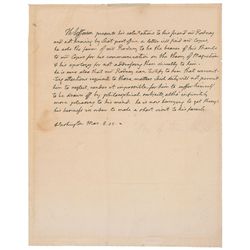 Th Jefferson presents his salutations to his friend mr Rodney
and not knowing by what post office a letter will find mr Cooper
he asks the favor of mr Rodney to be the bearer of his thanks
to mr Cooper for his communication on the theory of Magnetism
& his apology for not addressing them directly to him.
he is sure also that mr Rodney can testify to him that unremit-
ting attentions requisite to those matters which duty will not permit
him to neglect, render it impossible for him to suffer himself
to be drawn off by philosophical subjects, altho' infinitely
more pleasing to his mind. he is now hurrying to get through
his business in order to make a short visit to his
Washington Mar. 8.